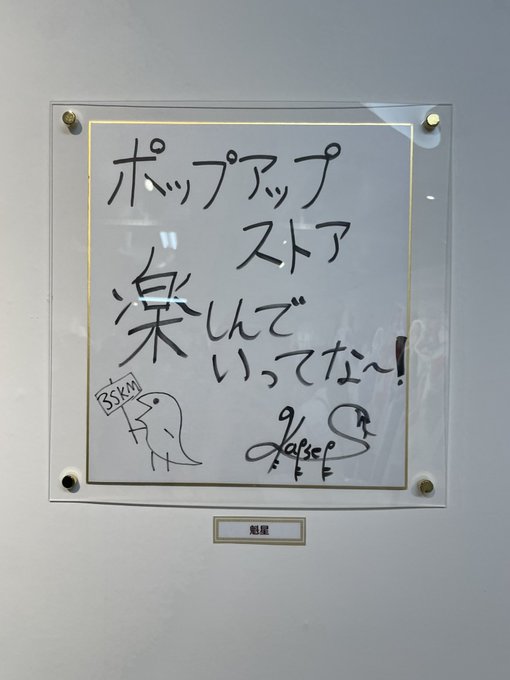 ポップアップ
ストア
楽しんで
いってな～!
3SKM
魁星